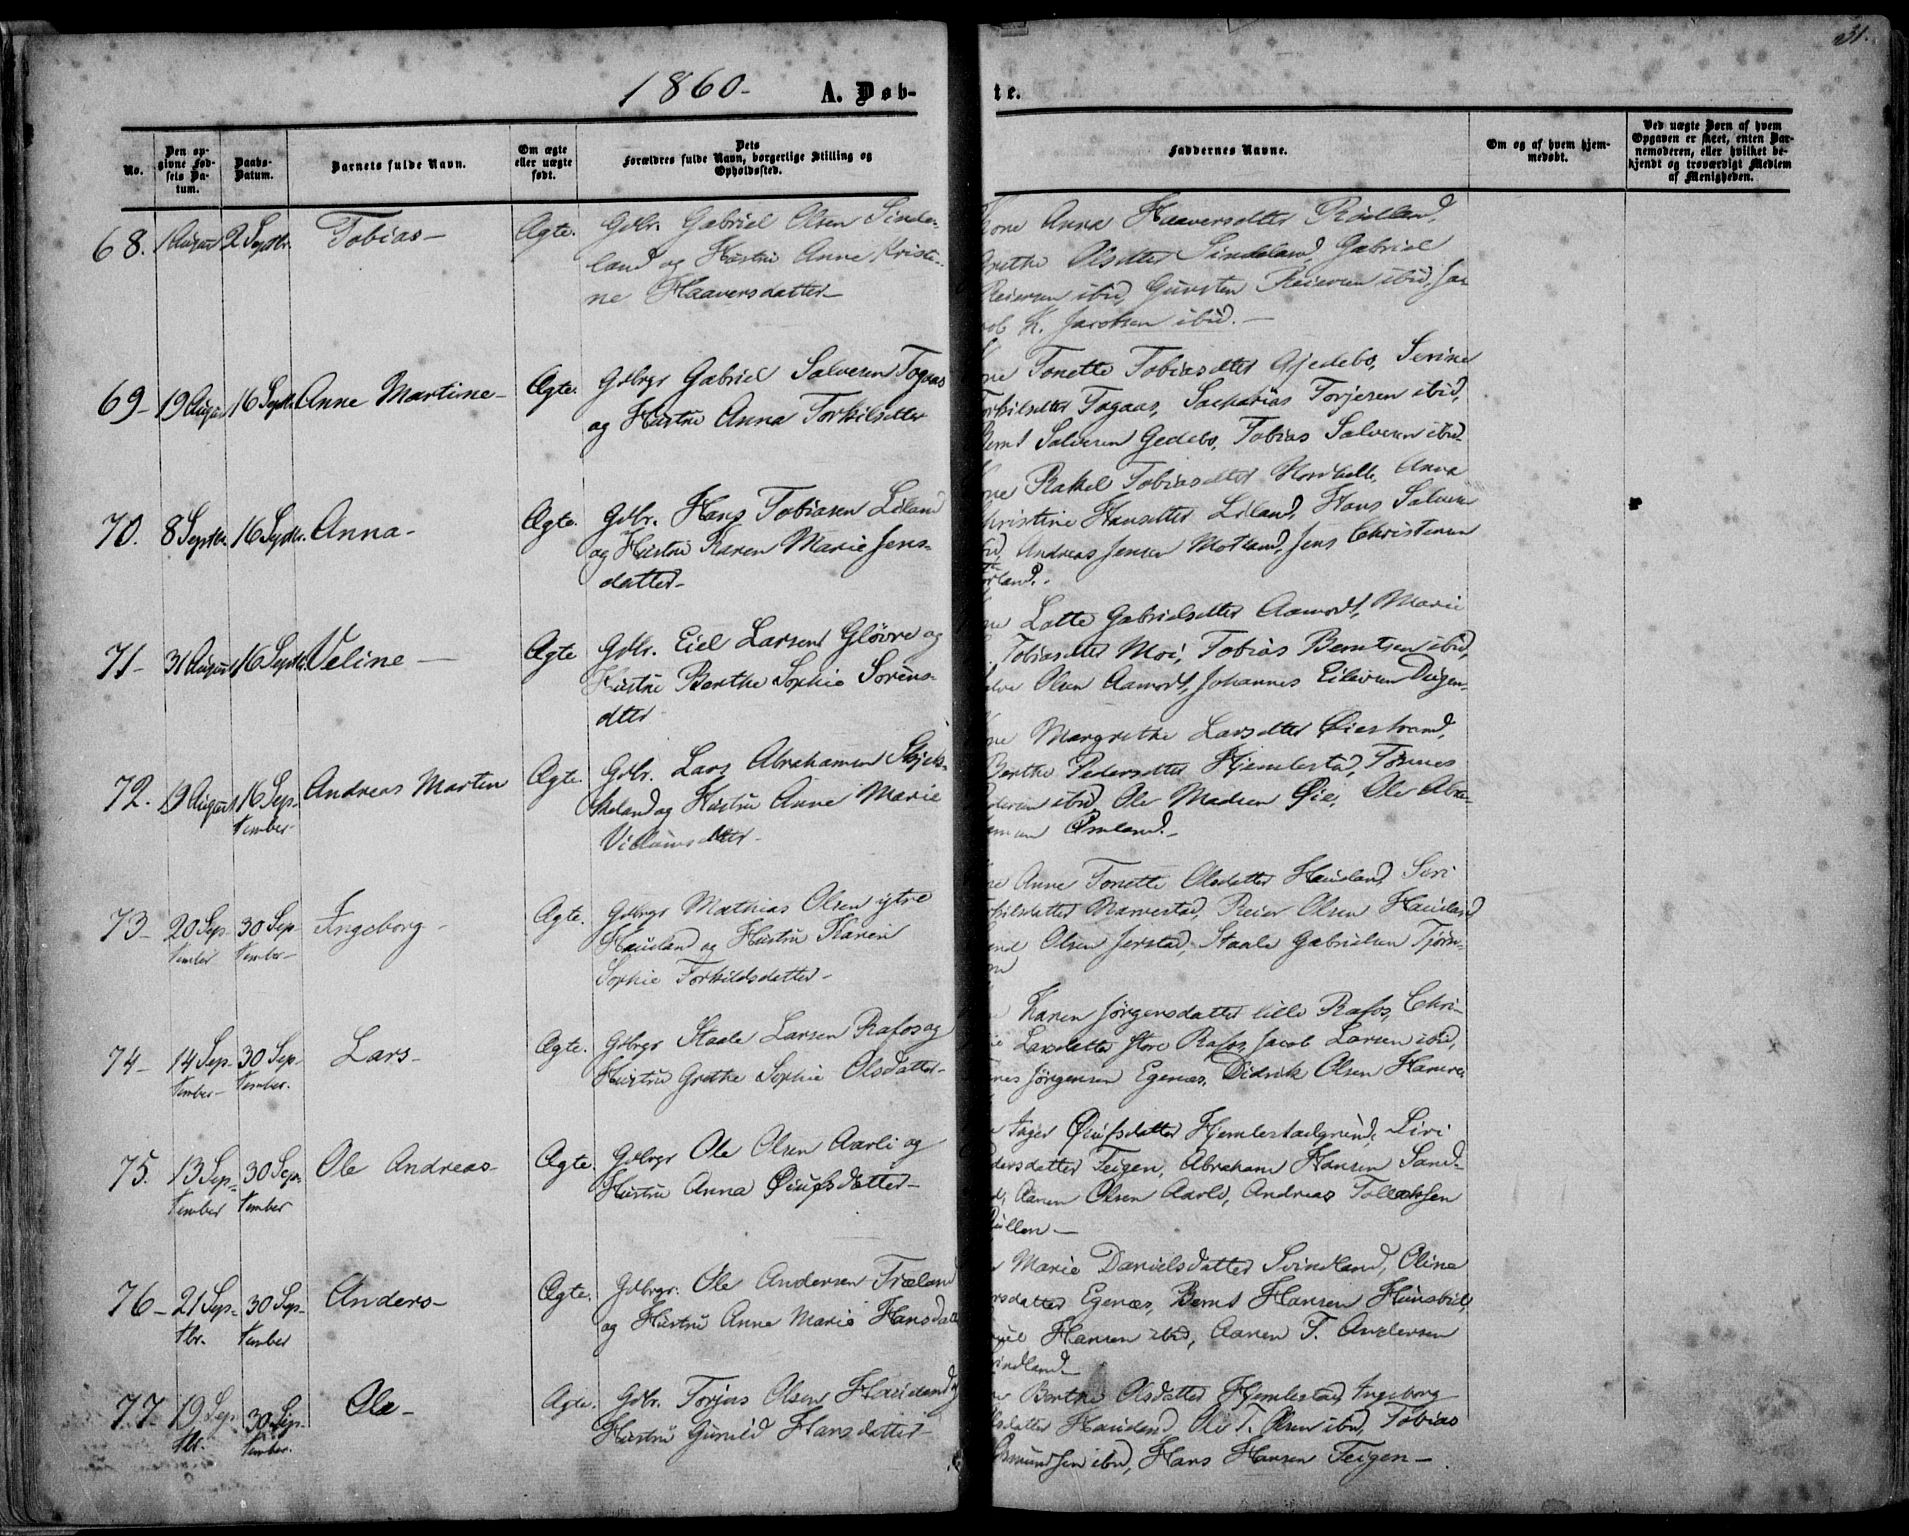 31.
1860-
A. Døb-
te.
No.
Den op-
givne Fød-
sels Da-
tum.
Daabs-
Datum.
Barnets fulde Navn.
Om ægte
eller uægte
født.
Dets
Forældres fulde Navn, borgerlige Stilling og
Opholdssted.
Faddernes Navne.
Om og af hvem hjem-
medøbt.
Ved uægte Børn af hvem
Opgaven er skeet, enten Bar-
nemoderen, eller hvilket be-
kjendt og troværdigt Medlem
af Menigheden.
68. 1 August 2 Septbr. Tobias- Ægte. Gdbr. Gabriel Olsen Sinde-
land og Hustru Anne Kristi-
ne Haaversdatter-
Kone Anna Haaversdtter Rødland,
Grethe Olsdtter Sindeland, Gabriel
Reiersen ibid, Guvsten Reiersen ibid, Ja-
cob K. Jacobsen ibid.-
69- 19 August 16 Septbr. Anne Martine- Ægte. Gdbrgr Gabriel Salvesen Fogaas
og Hustru Anna Torkilsdtter
Tonette Tobiasdtter Gjedebo, Serine
Torkilsdtter Fogaas, Sacharias Torjesen ibid,
Bernt Salvesen Gedebo, Tobias Salvesen ibid-
70. 8 Septbr. 16 Septbr. Anna- Ægte. Gdbr. Hans Tobiasen Liland
og Hustru Karen Marie Jens-
datter-
Rakel Tobiasdtter Anna
Christine Hansdtter Liland, Hans Salvesen
Andreas Jensen Motland, Jens Christensen
71- 31 August 16 Septbr. Veline- Ægte Gdbr. Eiel Larsen Gløvre og
Hustru Berthe Sophie Sørens-
dtter
Lotte Gabrielsdtter Aamodt, Marie
Tobiasdtter Moi, Tobias Berntsen ibid,
Olsen Aamodt, Johannes Eilevsen
72. 9 August 16 Sep-
tember- Andreas Martin Ægte. Gdbr. Lars Abrahamsen
og Hustru Anne Marie
Margrethe Larsdtter Øiestrand,
Berthe Pedersdtter Hjemlestad, Tønnes
Pedersen ibid, Ole Madsen Øie, Ole Abra-
hamsen Omland-
73- 20 Sep-
tember 30 Sep-
tember- Ingeborg- Ægte. Gdbrgr Mathias Olsen ytre
Hauland og Hustru Karen
Sophie Torkildsdatter-
Anne Tonette Olsdatter Hauland, Siri
Torkilsdatter Narvestad, Reier Olsen Hauland
Olsen Jerstad, Staale Gabrielsen Tjørn-
74- 14 Sep-
tember- 30 Sep-
tember. Lars- Ægte. Gdbrgr Staale Larsen Rafos og
Hustru Grethe Sophie Olsdatter-
Karen Jørgensdatter lille Rafos, Chri-
Larsdatter store Rafos, Jacob Larsen ibid,
Jørgensen Egenæs, Didrik Olsen
75. 13 Sep-
tember 30 Sep-
tember Ole Andreas- Ægte. Gdbrgr Ole Olsen Aarli og
Hustru Anna
Inger Hjemlestadgrund, Siri
Pedersdatter Feigen, Abraham Hansen Sand-
Aanen Olsen Aarli, Andreas Tollaksen
76- 21 Sep-
tbr. 30 Sep-
tember Anders- Ægte. Gdbrgr. Ole Andersen Træland
og Hustru Anne Marie Hansda
Marie Danielsdatter Svindland, Oline
Egenæs, Bernt Hansen Hunsbedt,
Hansen ibid, Aanen T. Andersen
Svindland-
77- 19 Sep-
tbr. 30 Sep-
tember. Ole- Ægte. Gdbr. Torjus Olsen Hauland og
Hustru Gunild Hansdatter-
Berthe Olsdatter Hjemlestad, Ingeborg
Olsdatter Hauland, Ole T. Olsen ibid, Tobias
Osmundsen ibid, Hans Hansen Feigen-